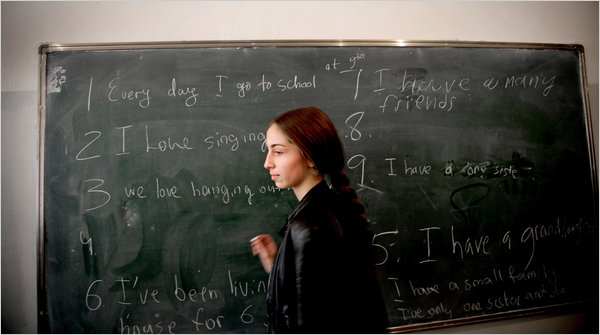 1 Every day I go to school at 9³⁰
2 I love singing
3 we love hanging ou
4
6 I've been livin
house for 6
1 I have a many
friends
8.
9. I have a one siste
5. I have a grand
I have a small famil
I've only one sister and